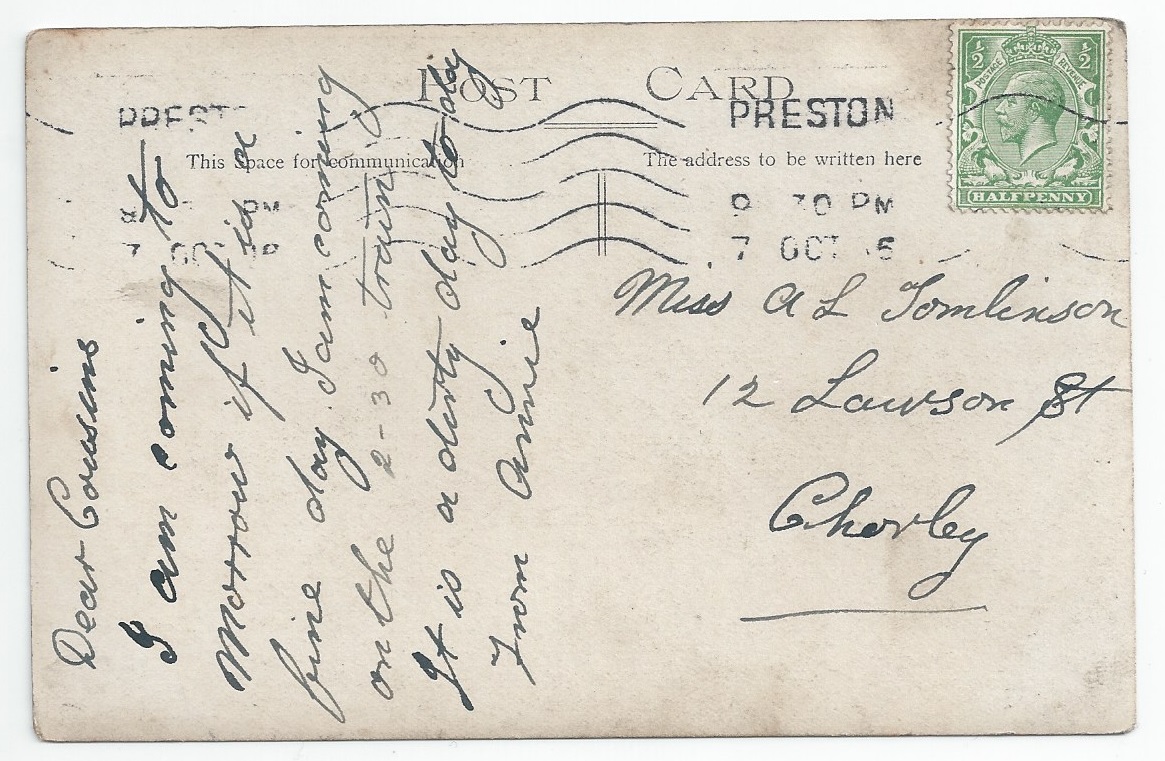 POST CARD
This Space for communication
The address to be written here
PRESTON
7 OCT
½ ½
POSTAGE REVENUE
HALFPENNY
Dear Cousens
I am coming to
Morrow if it is a
fine day. I am coming
on the 2-30 train
It is a dirty day to day
From Annie
Miss A L Tomlinson
12 Lawson St
Chorley